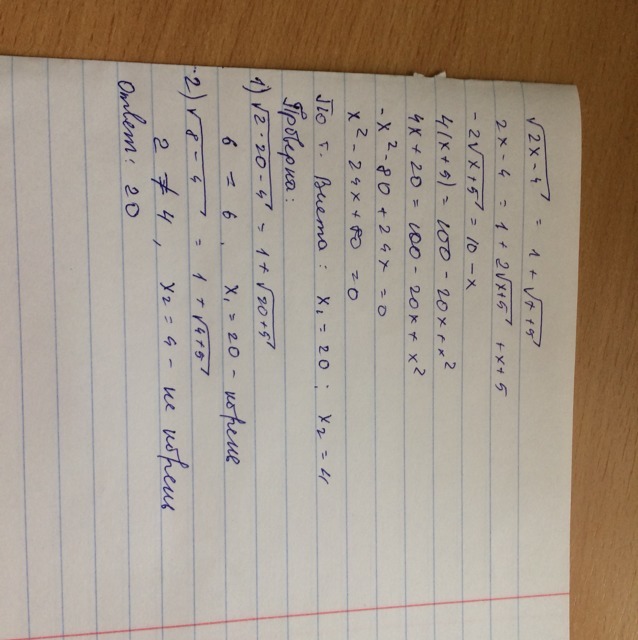 √2x-4 = 1 + √x+5
2x-4 = 1 + 2√x+5 + x+5
-2√x+5 = 10-x
4(x+5) = 100-20x+x²
4x+20 = 100-20x+x²
-x²-80+24x=0
x²-24x+80=0
По т. Виета: x₁=20; x₂=4
Проверка:
1) √2·20-4 = 1+√20+5
6 = 6, x₁=20 - корень
2) √8-4 = 1+√4+5
2 ≠ 4, x₂=4 - не корень
Ответ: 20